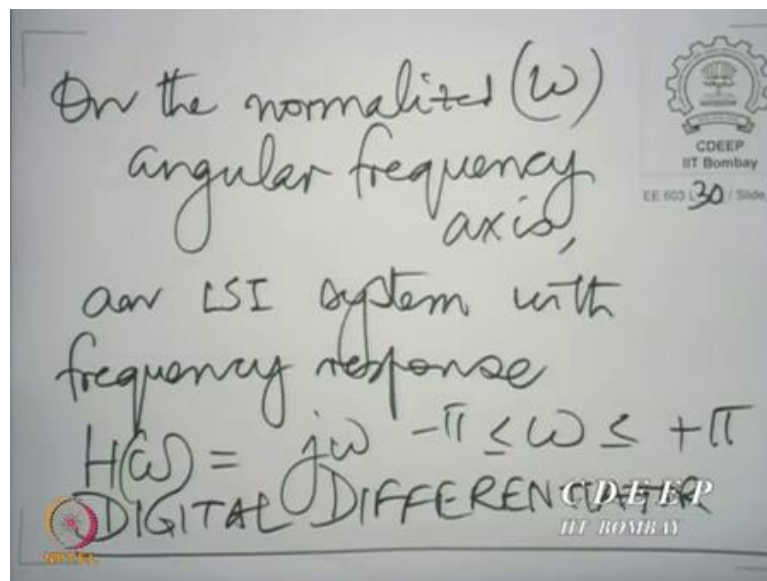 On the normalized (ω)
angular frequency
axis,
an LSI system with
frequency response
H(ω) = jω -π ≤ ω ≤ +π
DIGITAL DIFFERENTIATOR
CDEEP
IIT Bombay
EE 603 L 30 / Slide
CDEEP
IIT BOMBAY
NPTEL